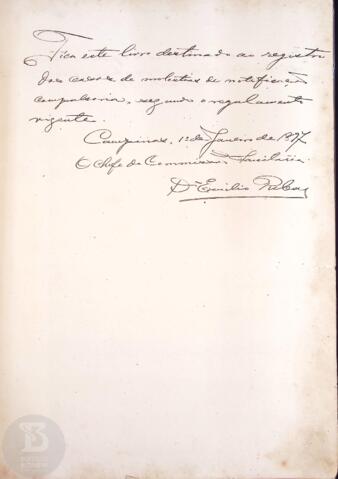 Fica este livro destinado ao registro
dos casos de molestias de notificação
compulsoria, segundo o regulamento
vigente.
Campinas, 1º de Janeiro de 1897
O Chefe da Commissão Sanitaria
Dr Emilio Ribas